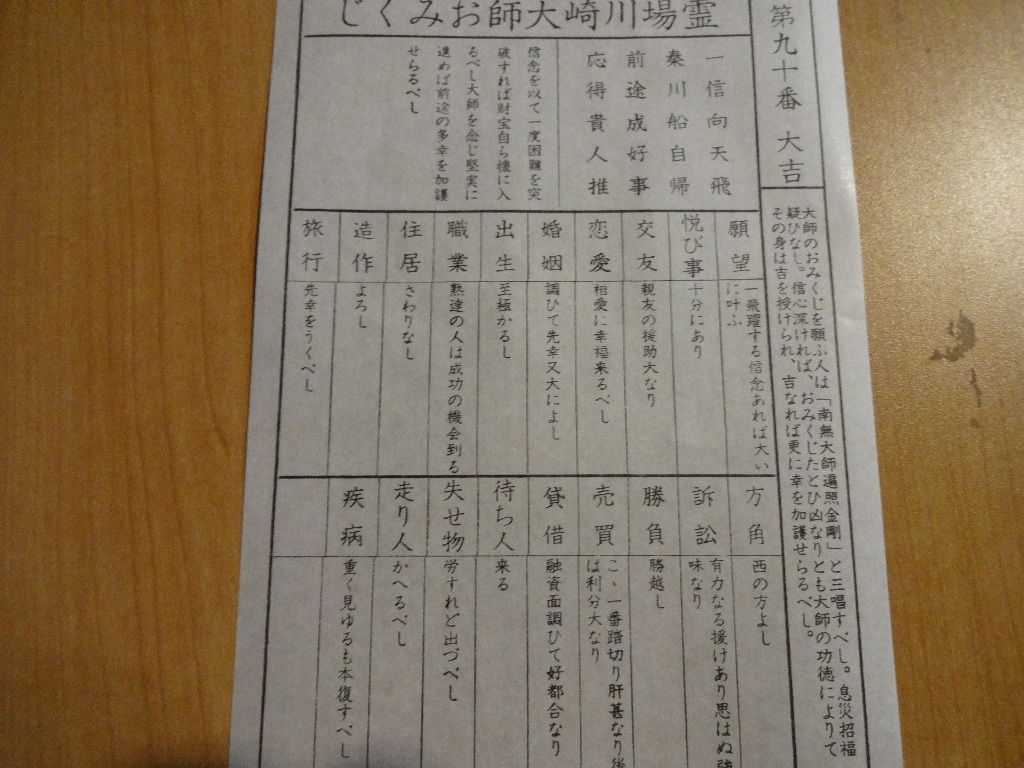 霊場川崎大師おみくじ
第九十番 大吉
大師のおみくじを願ふ人は「南無大師遍照金剛」と三唱すべし。息災招福
疑ひなし。信心深ければ、おみくじたとひ凶なりとも大師の功徳によりて
その身は吉を授けられ、吉なれば更に幸を加護せらるべし。
一信向天飛
秦川船自帰
前途成好事
応得貴人推
信念を以て一度困難を突
破すれば財宝自ら懐に入
るべし大師を念じ堅実に
進めば前途の多幸を加護
せらるべし
願望
一飛躍する信念あれば大い
に叶ふ
悦び事
十分にあり
交友
親友の援助大なり
恋愛
相愛に幸福来るべし
婚姻
調ひて先幸又大によし
出生
至極かるし
職業
熟達の人は成功の機会到る
住居
さわりなし
造作
よろし
旅行
先幸をうくべし
方角
西の方よし
訴訟
有力なる援けあり思はぬ
味なり
勝負
勝越し
売買
こゝ一番踏切り肝甚なり後
は利分大なり
貸借
融資面調ひて好都合なり
待ち人
来る
失せ物
労すれど出づべし
走り人
かへるべし
疾病
重く見ゆるも本復すべし